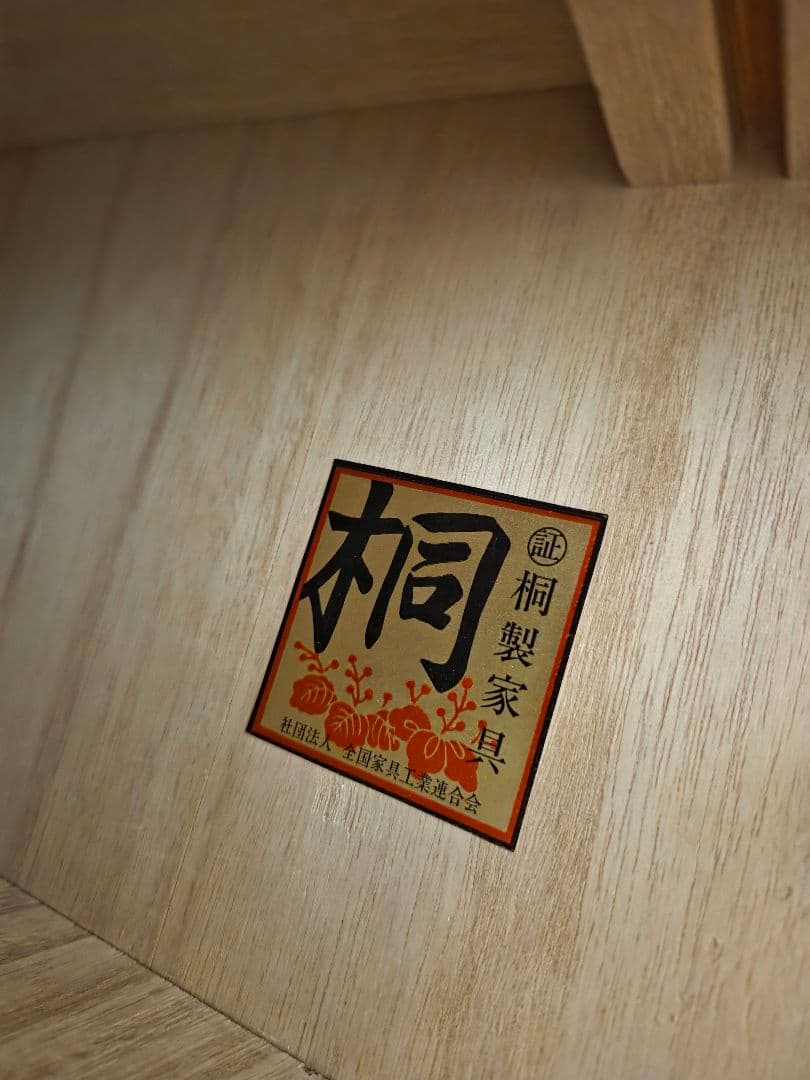 桐
㊣桐製家具
社団法人 全国家具工業連合会